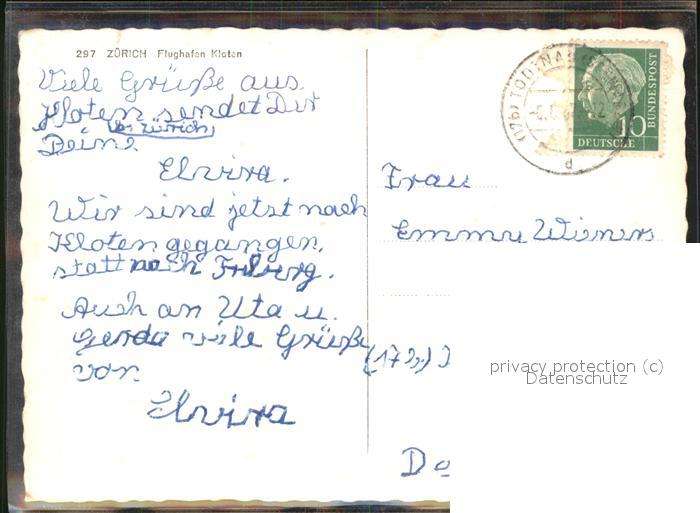 297 ZÜRICH Flughafen Kloten
Viele Grüße aus
Kloten sendet Dir
b. Zürich
Deine
Elvira.
Wir sind jetzt nach
Kloten gegangen,
statt nach
Auch an Uta u.
Gerda viele Grüße
von
Elvira
Frau
Emmy Wieners
(17
Do
10
DEUTSCHE
BUNDESPOST
d
privacy protection (c)
Datenschutz